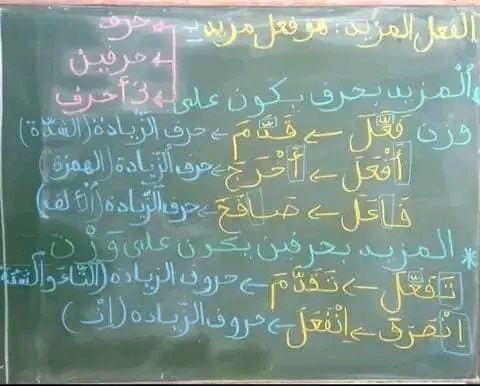 الفعل المزيد: هو فعل مزيد بـ ← حرف
← حرفين
← 3 أحرف
* الْمزيد بحرف يكون على
وزن فَعَّلَ ← قَدَّمَ ← حرف الزّيادة (الشدّة)
أَفْعَلَ ← أَخْرَجَ ← حرف الزّيادة (الهمزة)
فَاعَلَ ← صَافَحَ ← حرف الزّيادة (الألف)
* المزيد بحرفين يكون على وَزْن
تَفَعَّلَ ← تَقَدَّمَ ← حروف الزيادة (التّاء والشدّة
اِنْصَرَفَ ← اِنْفَعَلَ ← حروف الزّيادة (اِنْ)